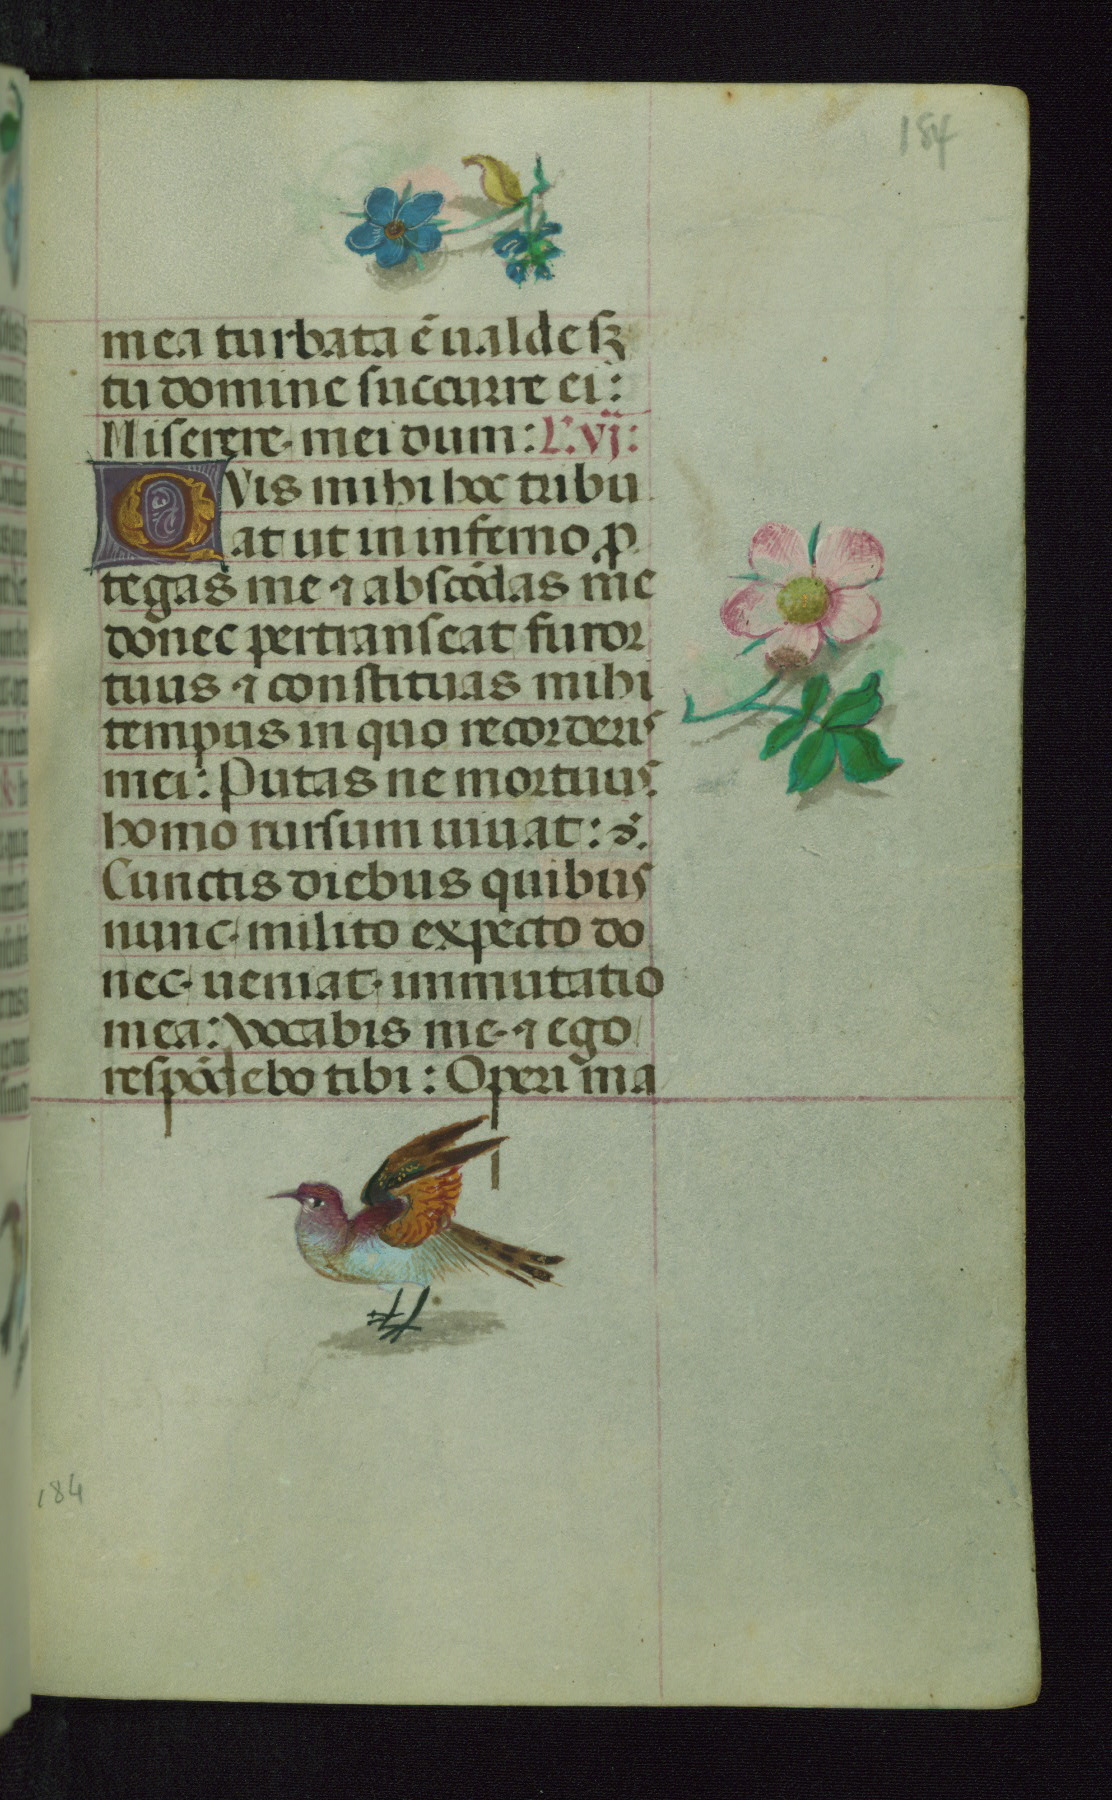 184
mea turbata ē ualde sꝫ
tu domine succurre ei:
Miserere mei dum: L'. vij:
QVis mihi hoc tribu
at ut in inferno ꝓ
tegas me ⁊ abscōdas me
donec pertranseat furor
tuus ⁊ constituas mihi
tempus in quo recorderis
mei: Putas ne mortuus
homo rursum uiuat: s.
Cunctis diebus quibus
nunc milito expecto do
nec ueniat immutatio
mea: Vocabis me ⁊ ego
respōdebo tibi: Operi ma
184